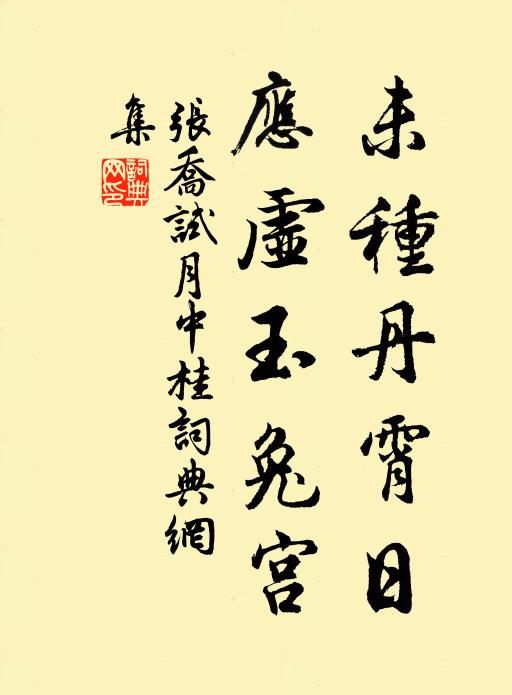 未種丹霄日
應虛玉兔宮
張喬試月中桂詞典網
集
詞典
网印